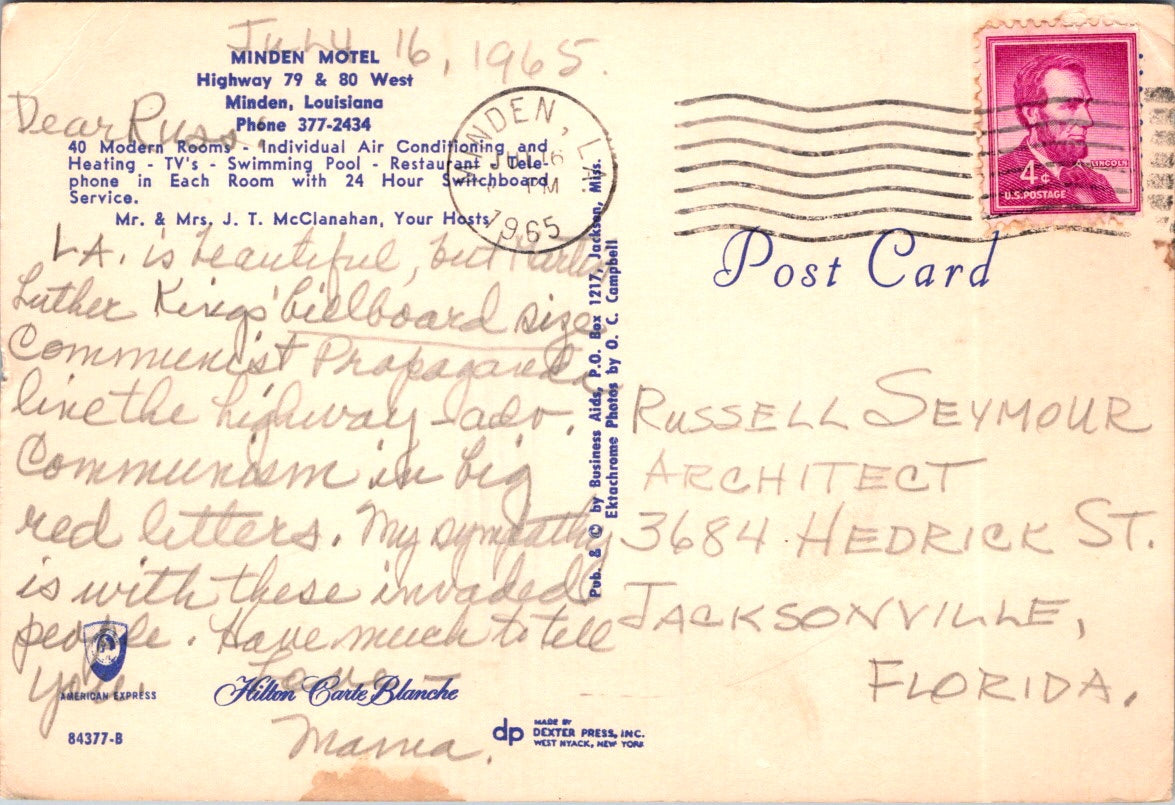 July 16, 1965.
MINDEN MOTEL
Highway 79 & 80 West
Minden, Louisiana
Phone 377-2434
40 Modern Rooms - Individual Air Conditioning and
Heating - TV's - Swimming Pool - Restaurant - Tele-
phone in Each Room with 24 Hour Switchboard
Service.
Mr. & Mrs. J. T. McClanahan, Your Hosts
Dear Russ:
LA. is beautiful, but Martin
Luther Kings' billboard size
Communist Propaganda
line the highway - adv.
Communism in big
red letters. My sympathy
is with these invaded
people. Have much to tell
you
Love -
Mama.
AMERICAN EXPRESS
Hilton Carte Blanche
84377-B
dp MADE BY
DEXTER PRESS, INC.
WEST NYACK, NEW YORK
Pub. & © by Business Aids, P.O. Box 1217, Jackson, Miss.
Ektachrome Photos by O. C. Campbell
MINDEN, LA.
JUL 16
PM
1965
LINCOLN
4¢
U.S. POSTAGE
Post Card
RUSSELL SEYMOUR
ARCHITECT
3684 HEDRICK ST.
JACKSONVILLE,
FLORIDA.